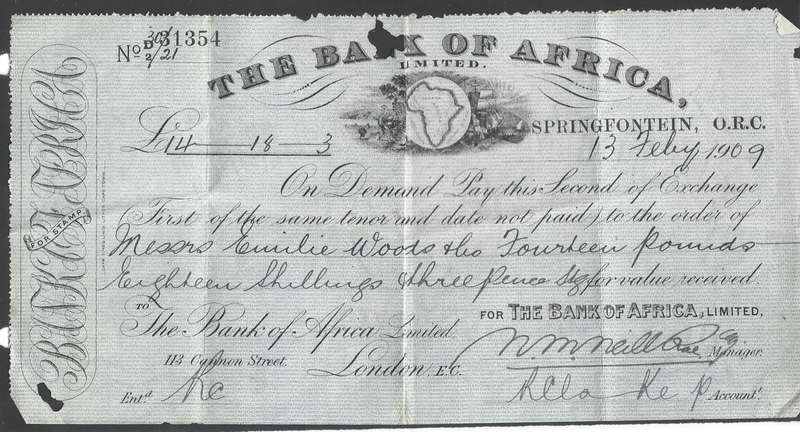 No D 31354
30/21
2/
THE BANK OF AFRICA,
LIMITED.
SPRINGFONTEIN, O.R.C.
£14 - 18 - 3
13 Feby 1909
On Demand Pay this Second of Exchange
(First of the same tenor and date not paid) to the order of
Messrs Emilie Woods & Co Fourteen Pounds
Eighteen Shillings & three pence Stg for value received.
FOR THE BANK OF AFRICA, LIMITED,
TO
The Bank of Africa Limited.
Manager.
113 Cannon Street.
London, E.C.
Entd.
Accountt.
BANK OF AFRICA
FOR STAMP